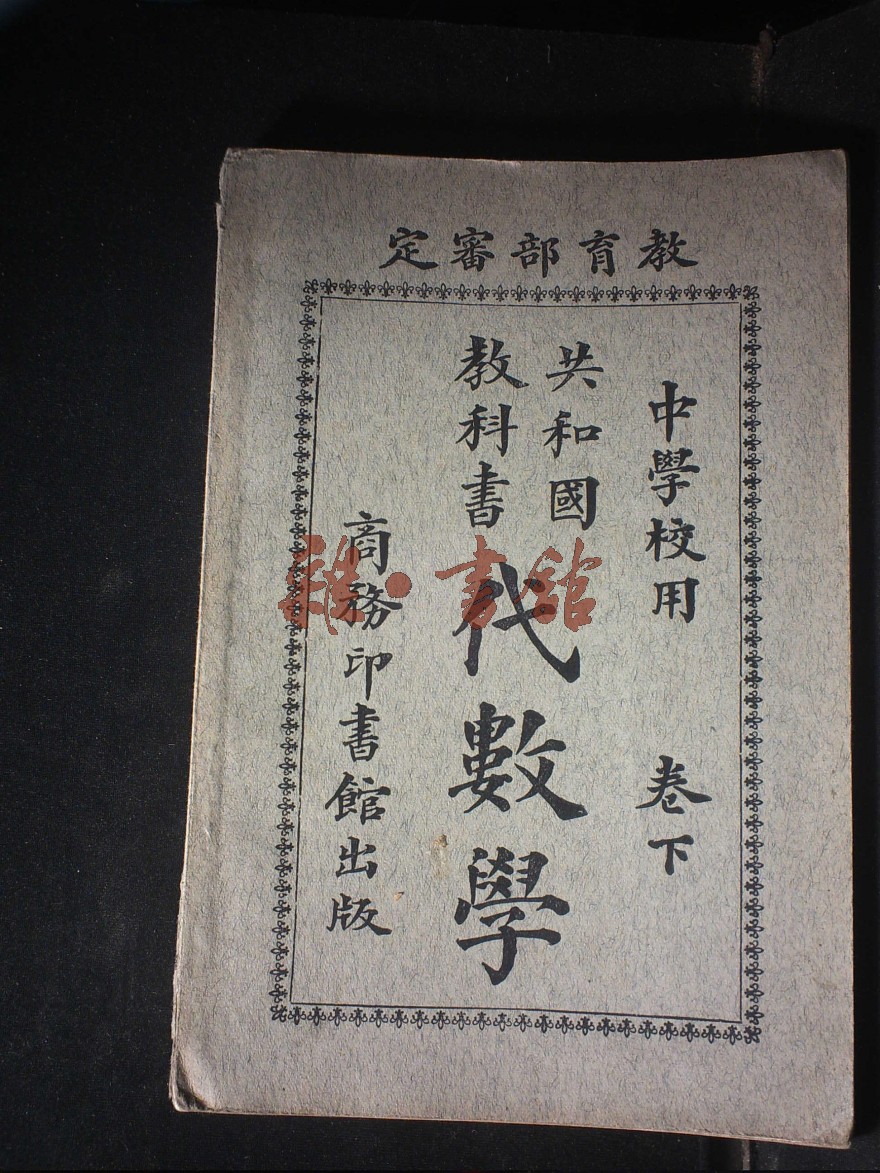 教育部審定
中學校用 卷下
共和國
教科書
代數學
商務印書館出版